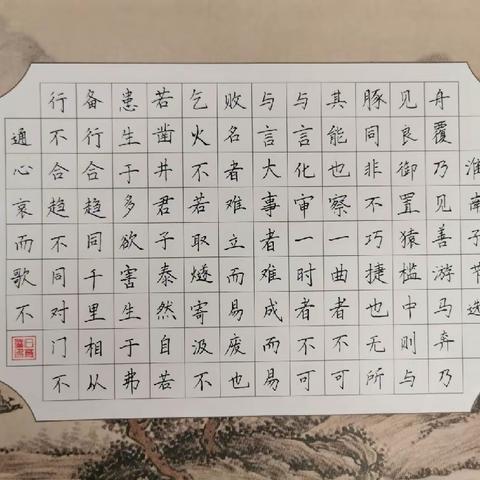 淮南子节选
舟覆乃见善游马奔乃
见良御置猿槛中则与
豚同非不巧捷也无所
其能也察一曲者不可
与言化审一时者不可
与言大事者难成而易
败名者难立而易废也
乞火不若取燧寄汲不
若凿井君子泰然自若
患生于多欲害生于弗
备行合趋同千里相从
行不合趋不同对门不
通心哀而歌不